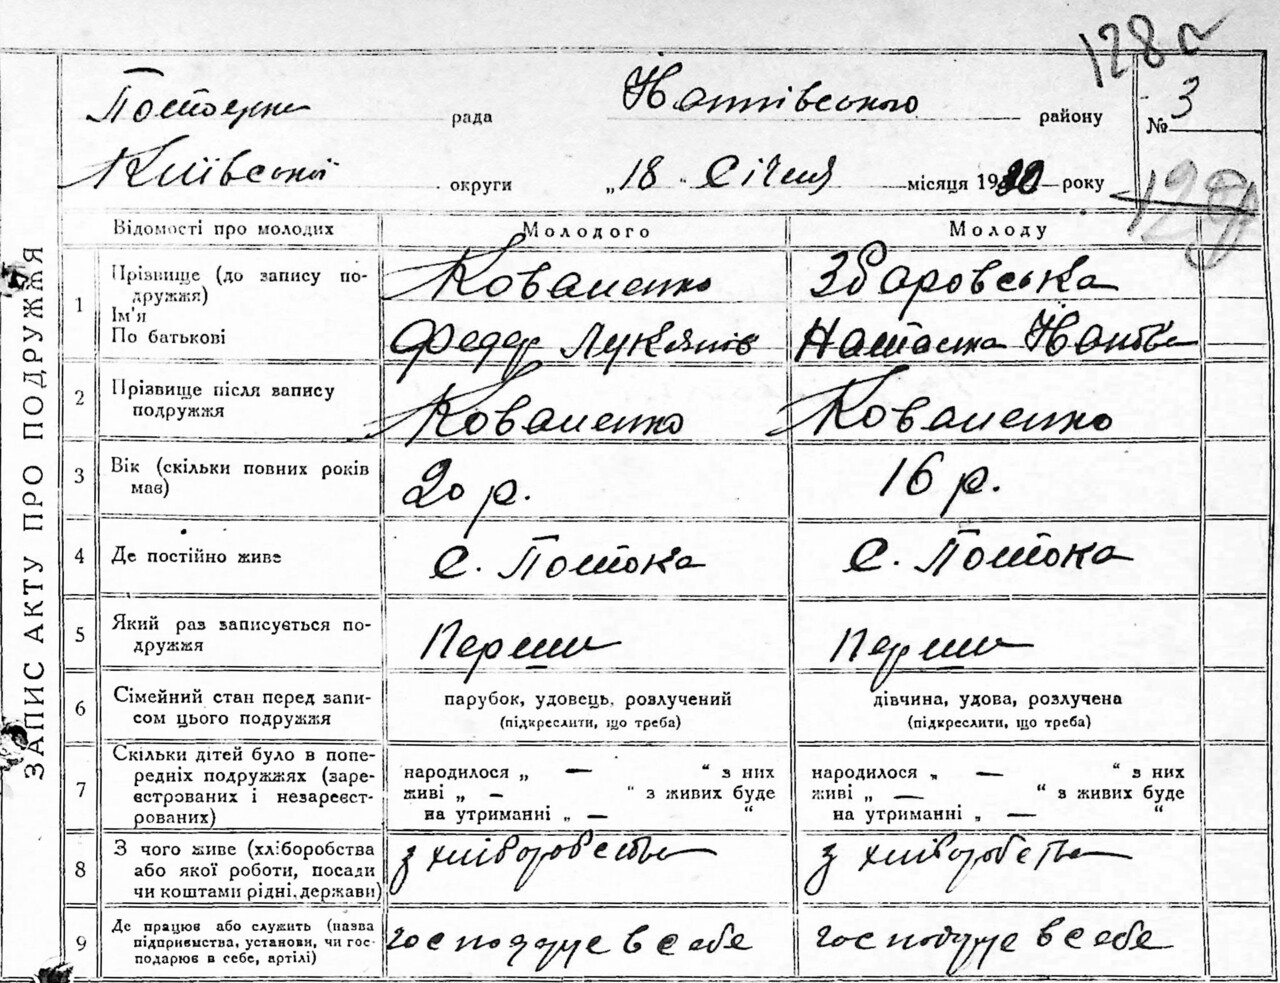 128
Потоцька рада Кагарлицького району № 3
Київської округи „18" Січня місяця 1930 року
ЗАПИС АКТУ ПРО ПОДРУЖЖЯ
Відомості про молодих Молодого Молоду
1 Прізвище (до запису подружжя) Коваленко Збаровська
Ім'я
По батькові Федер Лукянів Наталка
2 Прізвище після запису подружжя Коваленко Коваленко
3 Вік (скільки повних років має) 20 р. 16 р.
4 Де постійно живе с. Потока с. Потока
5 Який раз записується подружжя Перши Перши
6 Сімейний стан перед записом цього подружжя парубок, удовець, розлучений дівчина, удова, розлучена
(підкреслити, що треба) (підкреслити, що треба)
7 Скільки дітей було в попередніх подружжях (зареєстрованих і незареєстрованих)
народилося „ — " з них народилося „ — " з них
живі „ — " з живих буде живі „ — " з живих буде
на утриманні „ — " на утриманні „ — "
8 З чого живе (хліборобства або якої роботи, посади чи коштами рідні, держави) з хліборобства з хліборобства
9 Де працює або служить (назва підприємства, установи, чи господарює в себе, артілі) господарує в себе господарує в себе